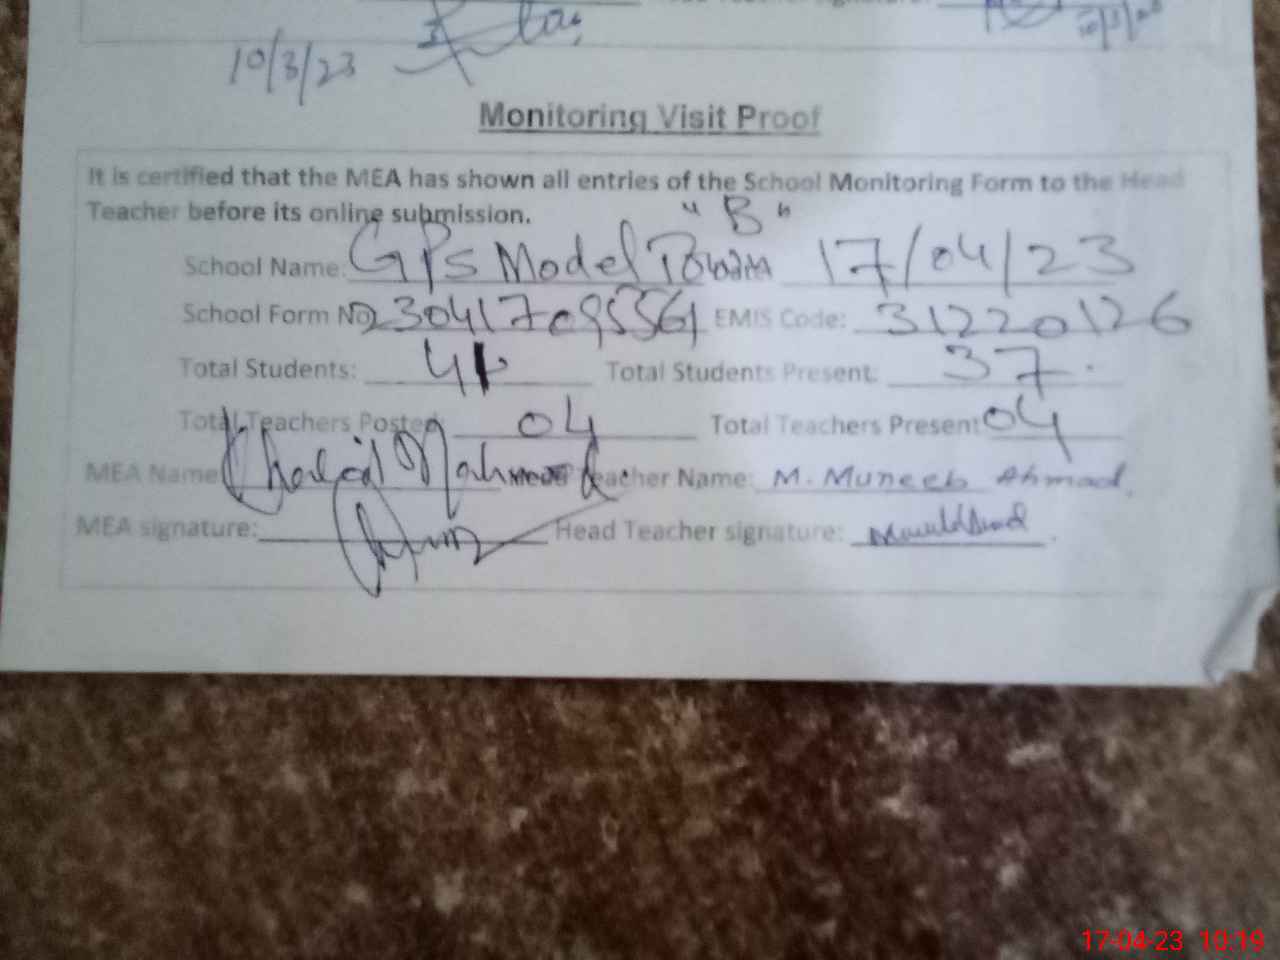 10/3/23
Monitoring Visit Proof
It is certified that the MEA has shown all entries of the School Monitoring Form to the Head
Teacher before its online submission.
"B"
School Name: GPS Model 17/04/23
School Form No EMIS Code: 31220126
Total Students: Total Students Present: 37
Total Teachers Posted 04 Total Teachers Present 04
MEA Name Khalid Mahmood Teacher Name: M. Muneeb Ahmad
MEA signature: Head Teacher signature:
17-04-23 10:19